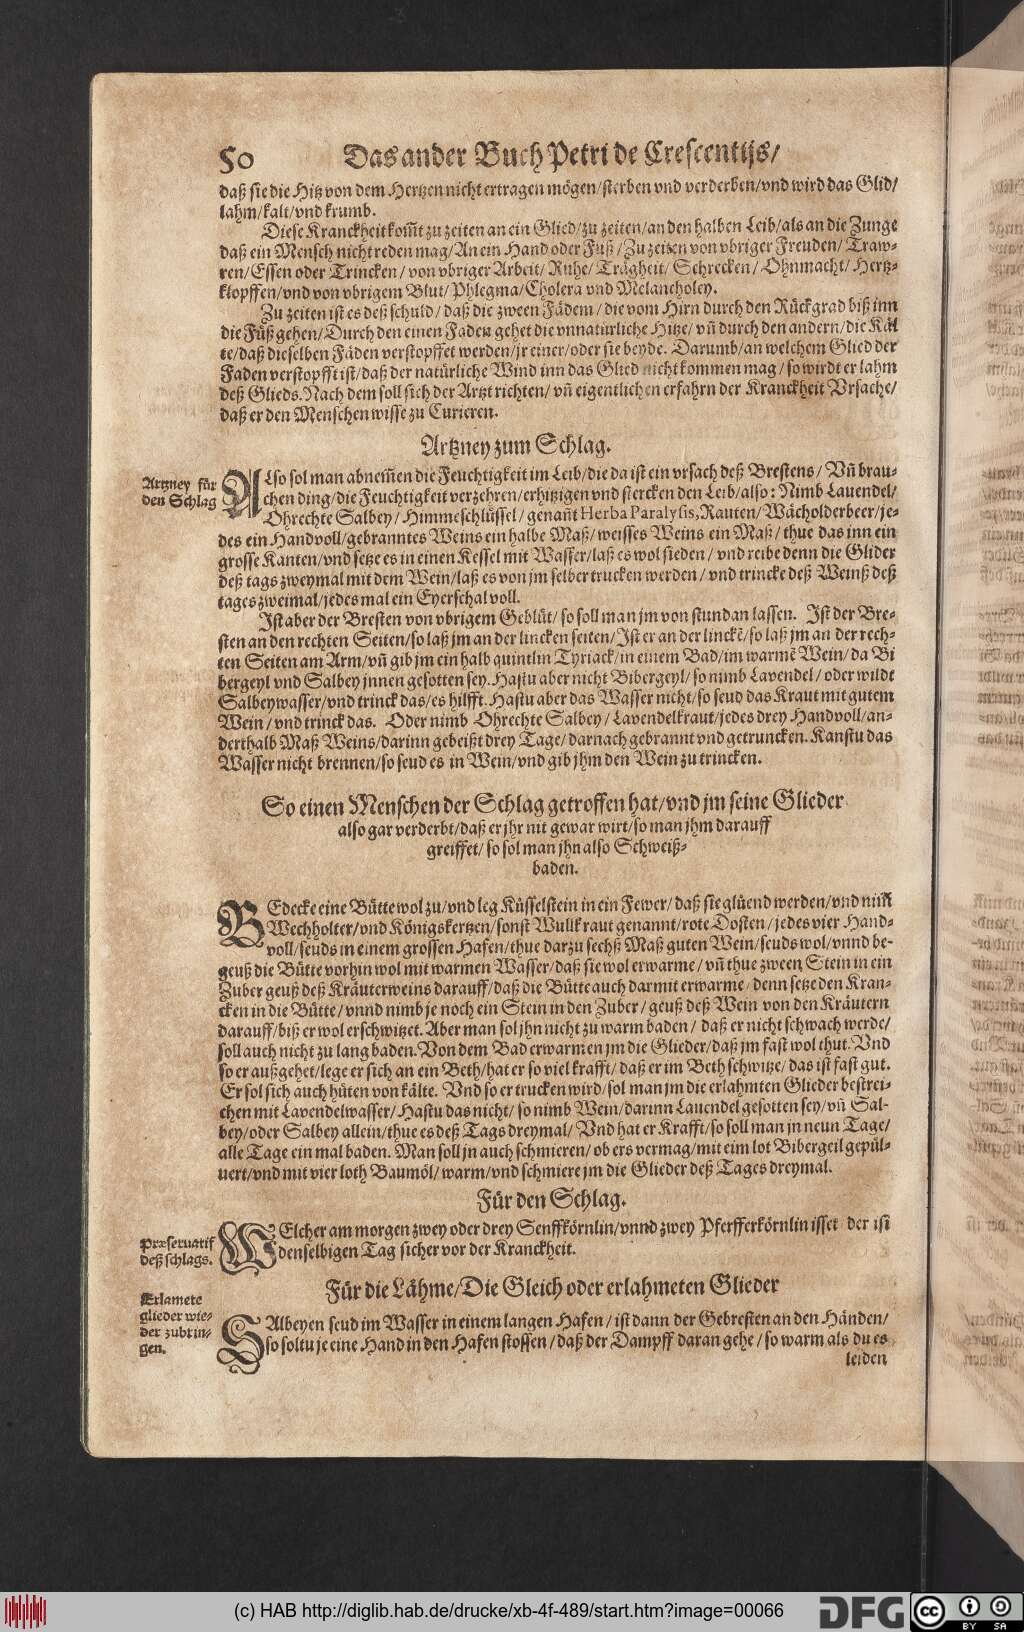 50 Das ander Buch Petri de Crescentijs/
daß sie die Hitz von dem Hertzen nicht ertragen mögen/sterben vnd verderben/vnd wird das Glid/
lahm/kalt/vnd krumb.
Diese Kranckheit kom̃t zu zeiten an ein Glied/zu zeiten/an den halben Leib/als an die Zunge
daß ein Mensch nicht reden mag/An ein Hand oder Fuß/Zu zeiten von vbriger Freuden/Traw-
ren/Essen oder Trincken/von vbriger Arbeit/Ruhe/Trägheit/Schrecken/Ohnmacht/Hertz-
klopffen/vnd von vbrigem Blut/Phlegma/Cholera vnd Melancholey.
Zu zeiten ist es deß schuld/daß die zween Fädem/die vom Hirn durch den Rückgrad biß inn
die Füß gehen/Durch den einen Faden gehet die vnnatürliche Hitze/vñ durch den andern/die Käl
te/daß dieselben Fäden verstopffet werden/jr einer/oder sie beyde. Darumb/an welchem Glied der
Faden verstopfft ist/daß der natürliche Wind inn das Glied nicht kommen mag/so wirdt er lahm
deß Glieds. Nach dem soll sich der Artzt richten/vñ eigentlichen erfahrn der Kranckheit Vrsache/
daß er den Menschen wisse zu Curieren.
Artzney zum Schlag.
Artzney für
den Schlag
Also sol man abnem̃en die Feuchtigkeit im Leib/die da ist ein vrsach deß Brestens/Vñ brau-
chen ding/die Feuchtigkeit verzehren/erhitzigen vnd stercken den Leib/also: Nimb Lauendel/
Ohrechte Salbey/Himmelschlüssel/genañt Herba Paralysis, Rauten/Wächolderbeer/je-
des ein Handvoll/gebranntes Weins ein halbe Maß/weisses Weins ein Maß/thue das inn ein
grosse Kanten/vnd setze es in einen Kessel mit Wasser/laß es wol sieden/vnd reibe denn die Glider
deß tags zweymal mit dem Wein/laß es von jm selber trucken werden/vnd trincke deß Weinß deß
tages zweimal/jedes mal ein Eyerschal voll.
Ist aber der Bresten von vbrigem Geblüt/so soll man jm von stundan lassen. Ist der Bre-
sten an den rechten Seiten/so laß jm an der lincken seiten/Ist er an der linckẽ/so laß jm an der rech-
ten Seiten am Arm/vñ gib jm ein halb quintlin Tyriack/in einem Bad/im warmẽ Wein/da Bi
bergeyl vnd Salbey jnnen gesotten sey. Hastu aber nicht Bibergeyl/so nimb Lavendel/oder wildt
Salbeywasser/vnd trinck das/es hilfft. Hastu aber das Wasser nicht/so seud das Kraut mit gutem
Wein/vnd trinck das. Oder nimb Ohrechte Salbey/Lavendelkraut/jedes drey Handvoll/an-
derthalb Maß Weins/darinn gebeißt drey Tage/darnach gebrannt vnd getruncken. Kanstu das
Wasser nicht brennen/so seud es in Wein/vnd gib jhm den Wein zu trincken.
So einen Menschen der Schlag getroffen hat/vnd jm seine Glieder
also gar verderbt/daß er jhr nit gewar wirt/so man jhm darauff
greiffet/so sol man jhn also Schweiß-
baden.
BEdecke eine Bütte wol zu/vnd leg Küsselstein in ein Fewer/daß sie glüend werden/vnd nim̃
Wechholter/vnd Königskertzen/sonst Wullkraut genannt/rote Dosten/jedes vier Hand-
voll/seuds in einem grossen Hafen/thue darzu sechß Maß guten Wein/seuds wol/vnnd be-
geuß die Bütte vorhin wol mit warmen Wasser/daß sie wol erwarme/vñ thue zween Stein in ein
Zuber geuß deß Kräuterweins darauff/daß die Bütte auch darmit erwarme/denn setze den Kran-
cken in die Bütte/vnnd nimb je noch ein Stein in den Zuber/geuß deß Wein von den Kräutern
darauff/biß er wol erschwitzet. Aber man sol jhn nicht zu warm baden/daß er nicht schwach werde/
soll auch nicht zu lang baden. Von dem Bad erwarmen jm die Glieder/daß jm fast wol thut. Vnd
so er außgehet/lege er sich an ein Beth/hat er so viel krafft/daß er im Beth schwitze/das ist fast gut.
Er sol sich auch hüten von kälte. Vnd so er trucken wird/sol man jm die erlahmten Glieder bestrei-
chen mit Lavendelwasser/Hastu das nicht/so nimb Wein/darinn Lauendel gesotten sey/vñ Sal-
bey/oder Salbey allein/thue es deß Tags dreymal/Vnd hat er Krafft/so soll man jn neun Tage/
alle Tage ein mal baden. Man soll jn auch schmieren/ob ers vermag/mit eim lot Bibergeil gepül-
uert/vnd mit vier loth Baumöl/warm/vnd schmiere jm die Glieder deß Tages dreymal.
Für den Schlag.
Præseruatif
deß schlags.
WElcher am morgen zwey oder drey Senffkörnlin/vnnd zwey Pfefferkörnlin isset der ist
denselbigen Tag sicher vor der Kranckheit.
Für die Lähme/Die Gleich oder erlahmeten Glieder
Erlamete
glieder wie-
der zubrin-
gen.
SAlbeyen seud im Wasser in einem langen Hafen/ist dann der Gebresten an den Händen/
so soltu je eine Hand in den Hafen stossen/daß der Dampff daran gehe/so warm als du es
leiden
(c) HAB http://diglib.hab.de/drucke/xb-4f-489/start.htm?image=00066
DFG
cc
BY SA